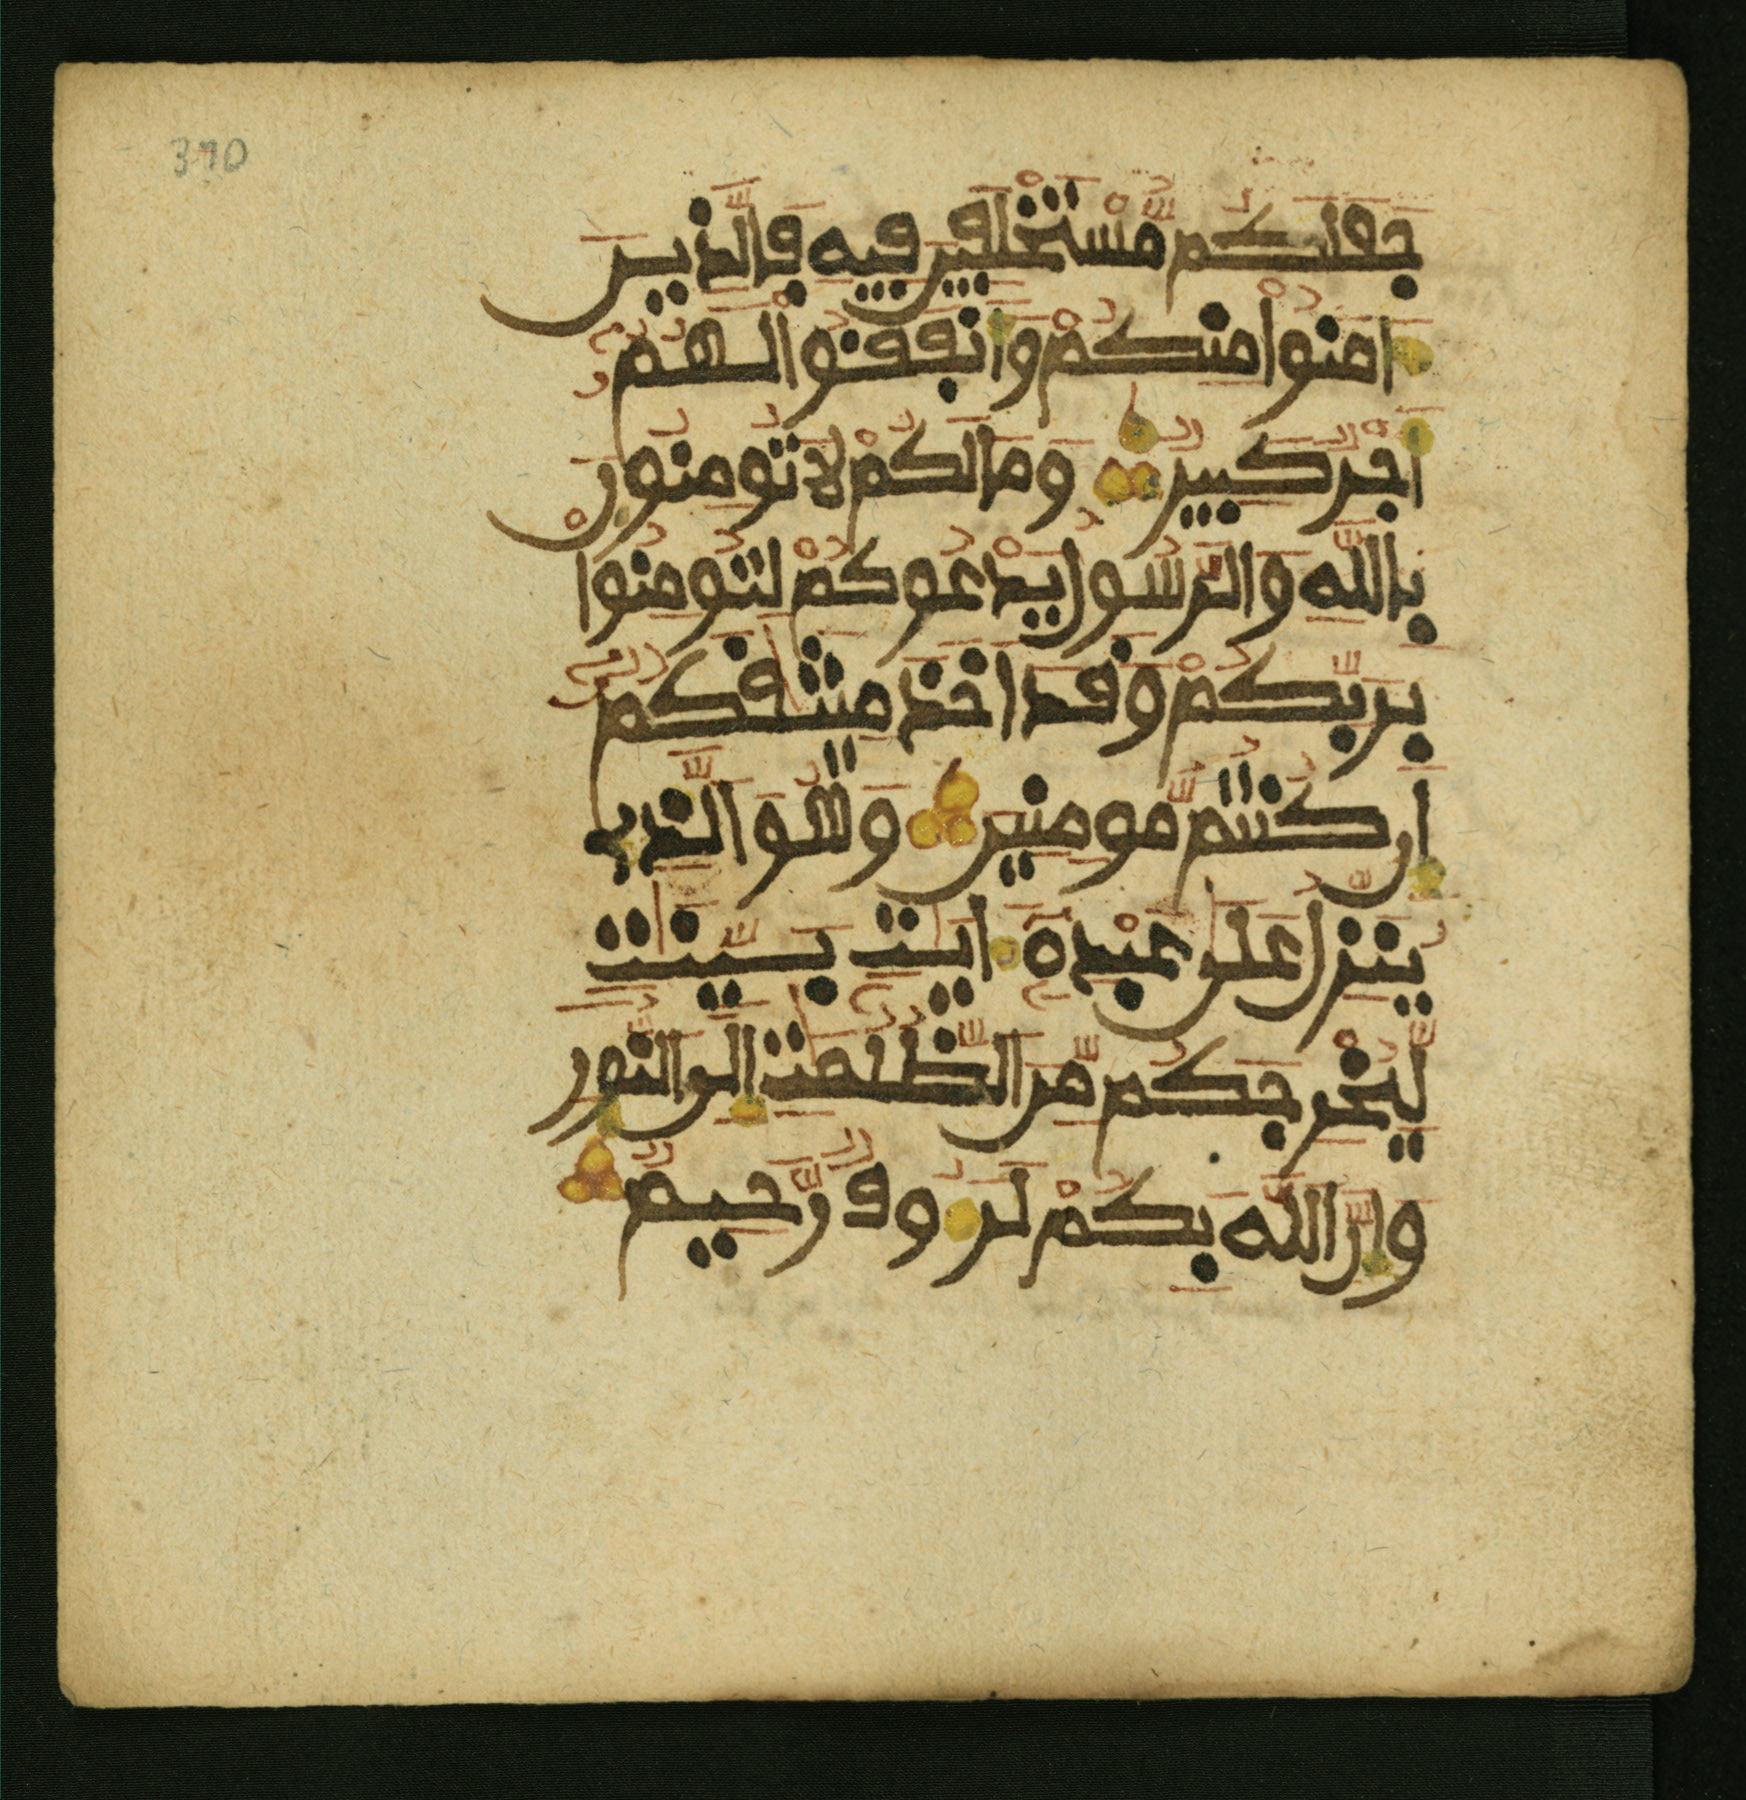 370
جعلكم مستخلفين فيه فالذين
امنوا منكم وانفقوا لهم
اجر كبير وما لكم لا تومنون
بالله والرسول يدعوكم لتومنوا
بربكم وقد اخذ ميثقكم
ان كنتم مومنين وهو الذي
ينزل على عبده ايت بينت
ليخرجكم من الظلمت الى النور
وان الله بكم لروف رحيم